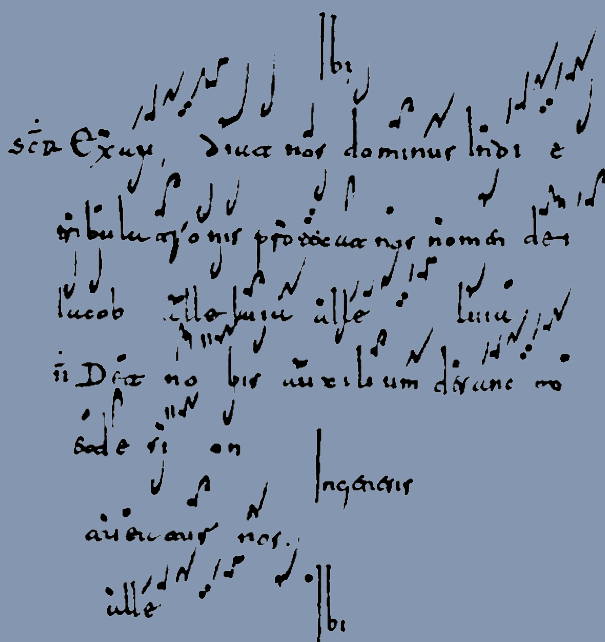 Ibi
Exau, diat nos dominus In di e
tribulationis protecat nos nomen dei
Iacob alleluia alle luia
II Det no bis auxilium de sanc to
et de si on
Ingeneris
nos.
alle Ibi